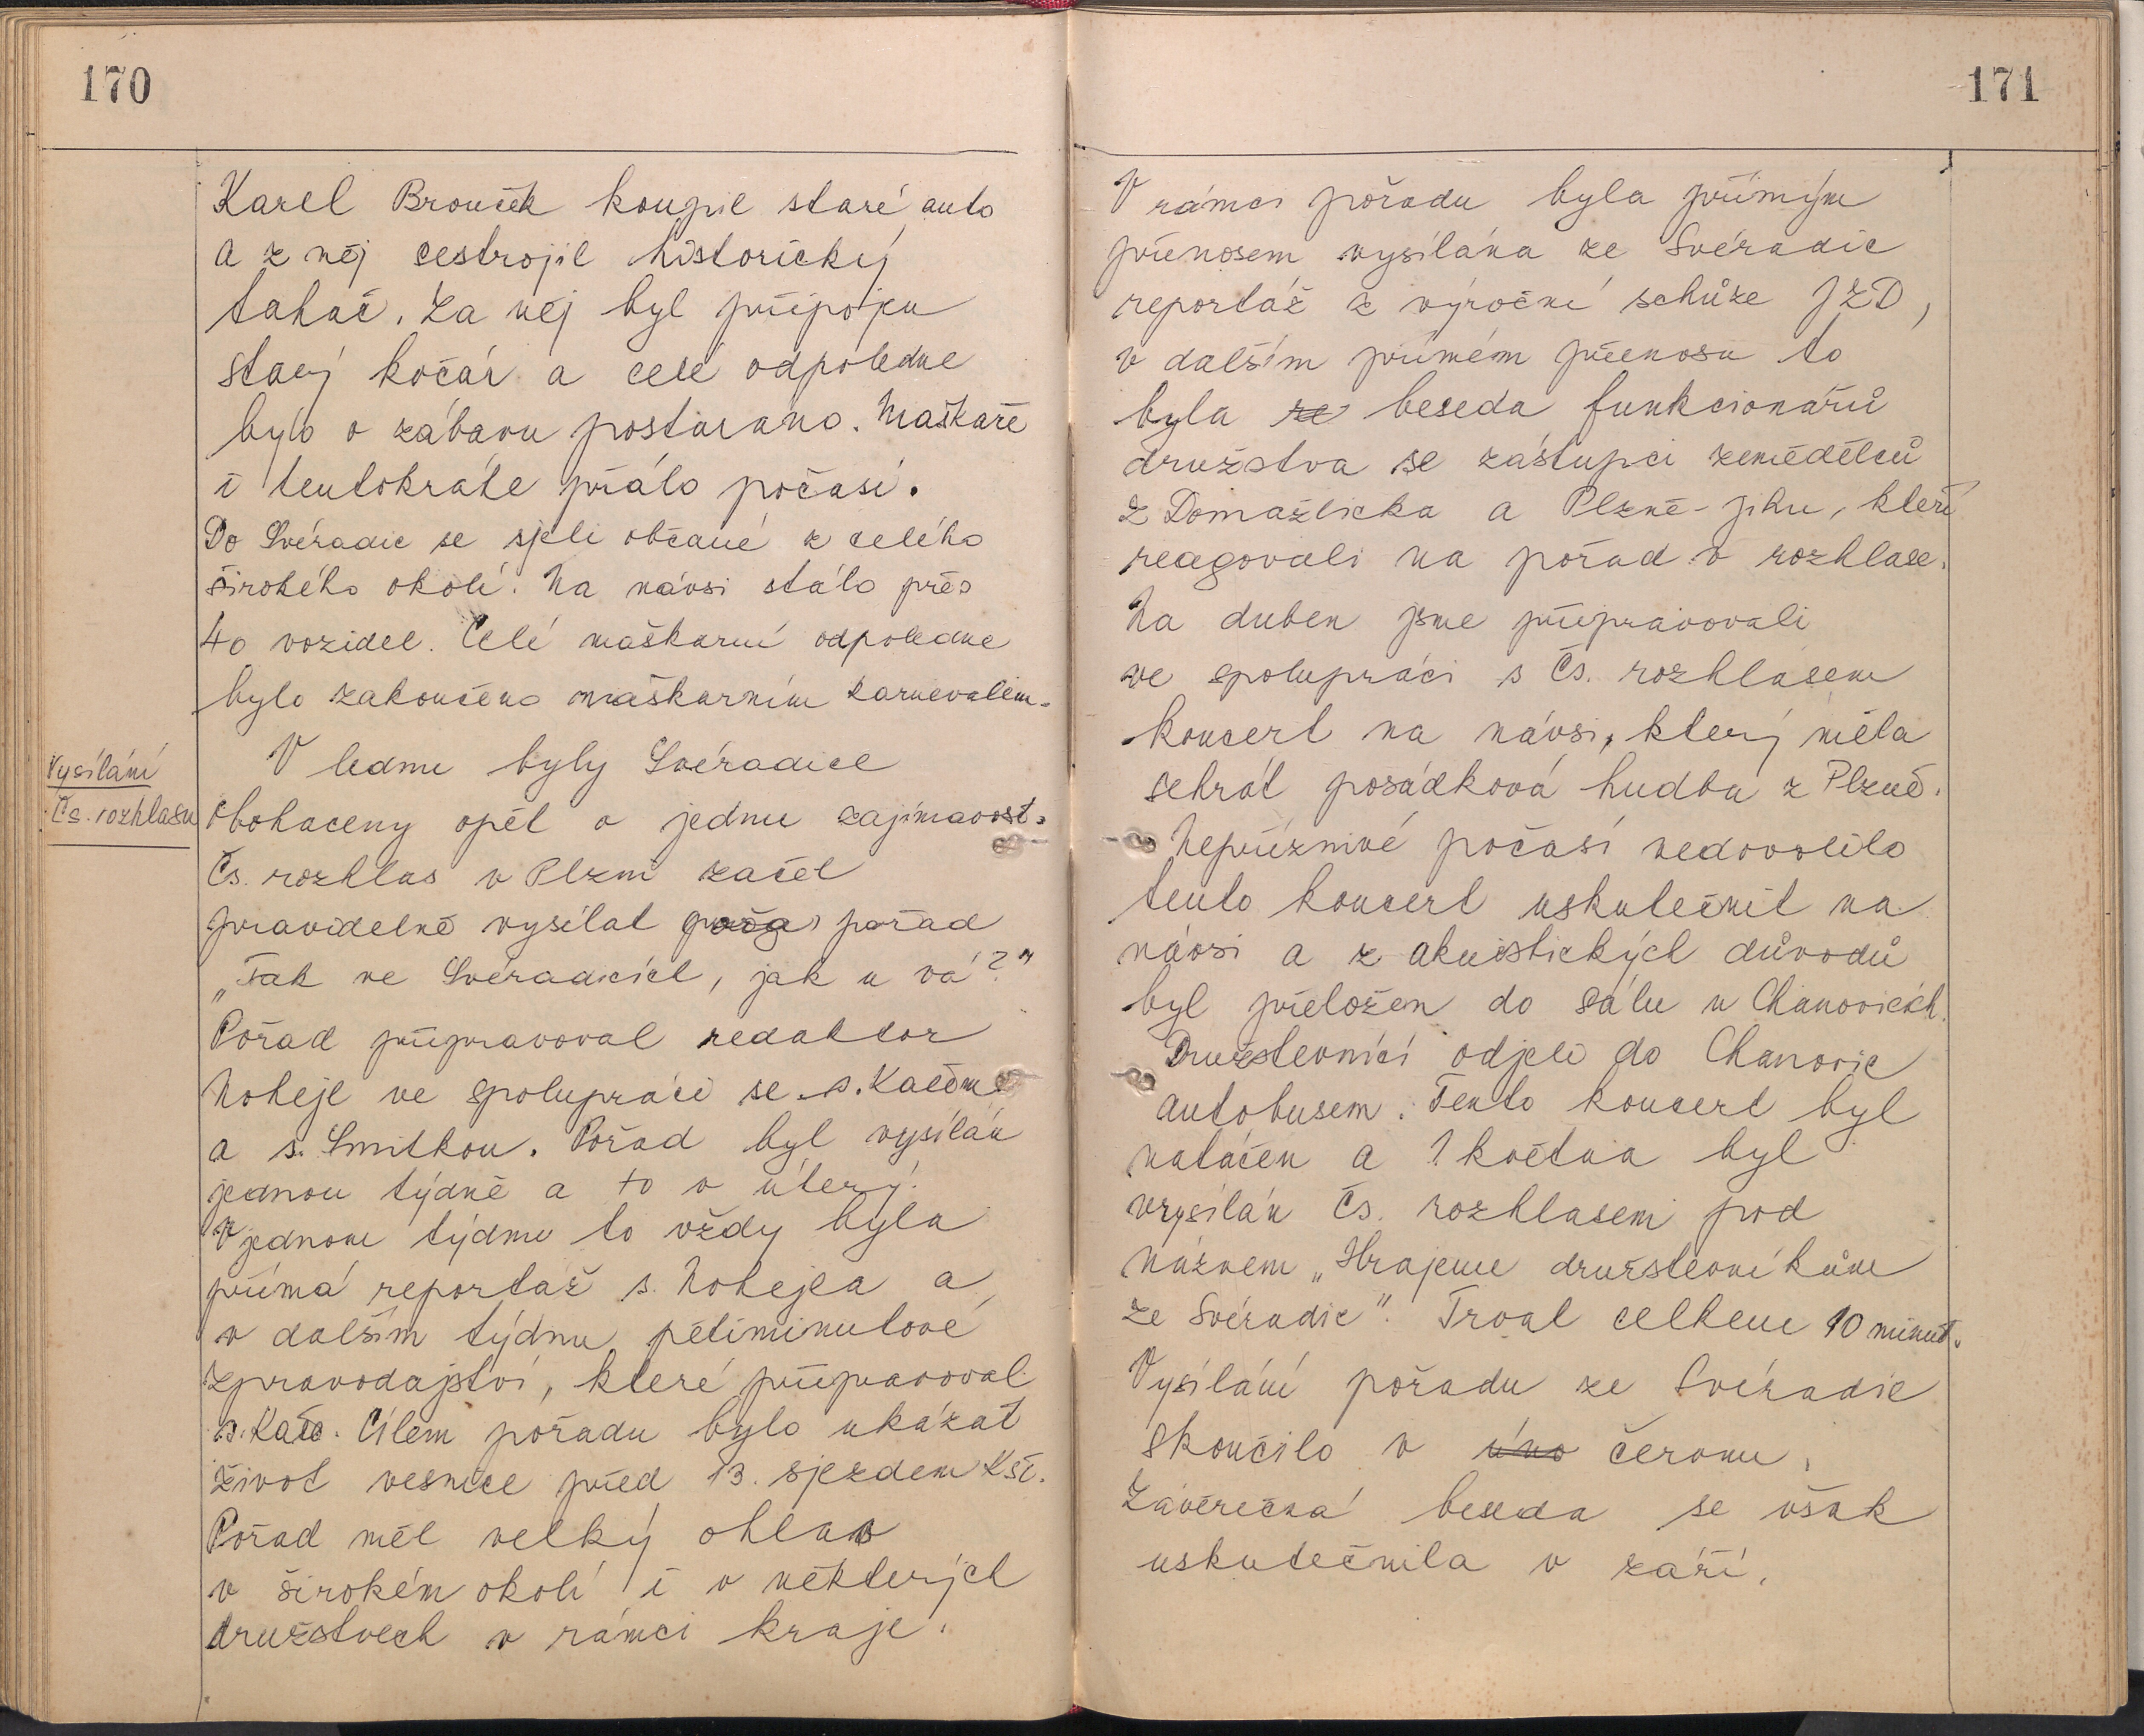 170
Karel Brouček koupil staré auto
a z něj sestrojil historický
tahač. Za něj byl připojen
starý kočár a celé odpoledne
bylo o zábavu postaráno. Maškaře
i tentokráte přálo počasí.
Do Svéradic se sjeli občané z celého
širokého okolí. Na návsi stálo přes
40 vozidel. Celé maškarní odpoledne
bylo zakončeno maškarním karnevalem.
Vysílání
Čs. rozhlasu
V lednu byly Svéradice
obohaceny opět o jednu zajímavost.
Čs. rozhlas v Plzni začal
pravidelně vysílat pořad
„Tak ve Svéradicích, jak u vá?"
Pořad připravoval redaktor
Nohejl ve spolupráci se s. Kačem
a s. Smitkou. Pořad byl vysílán
jednou týdně a to v úterý.
V jednom týdnu to vždy byla
přímá reportáž s. Nohejla a
v dalším týdnu pětiminutové
zpravodajství, které připravoval
s. Kač. Cílem pořadu bylo ukázat
život vesnice před 13. sjezdem KSČ.
Pořad měl velký ohlas
v širokém okolí i v některých
družstvech v rámci kraje.
171
V rámci pořadu byla přímým
přenosem vysílána ze Svéradic
reportáž z výroční schůze JZD,
v dalším přímém přenosu to
byla ze beseda funkcionářů
družstva se zástupci zemědělců
z Domažlicka a Plzně-jihu, kteří
reagovali na pořad v rozhlase.
Na duben jsme připravovali
ve spolupráci s Čs. rozhlasem
koncert na návsi, který měla
sehrát posádková hudba z Plzně.
Nepříznivé počasí nedovolilo
tento koncert uskutečnit na
návsi a z akustických důvodů
byl přeložen do sálu v Chanovicích.
Družstevníci odjeli do Chanovic
autobusem. Tento koncert byl
natáčen a 1. května byl
vysílán Čs. rozhlasem pod
názvem „Hrajeme družstevníkům
ze Svéradic". Trval celkem 10 minut.
Vysílání pořadu ze Svéradic
skončilo v úno červnu.
Závěrečná beseda se však
uskutečnila v září.